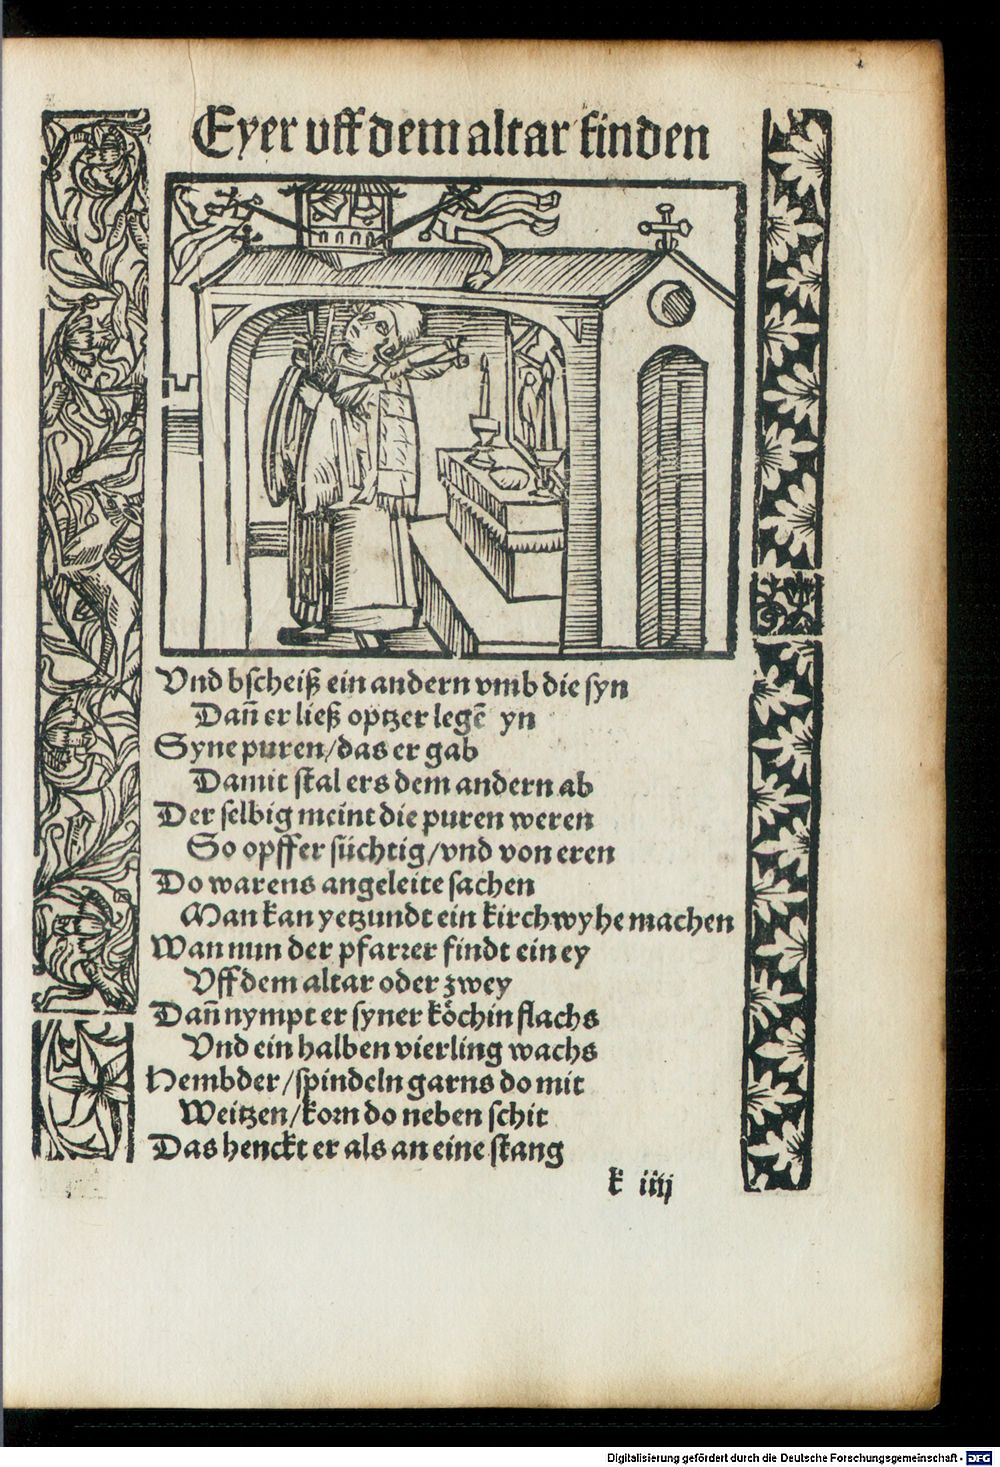 Eyer vff dem altar finden
Vnd bscheiß ein andern vmb die syn
Dañ er ließ optzer legē yn
Syne puren/das er gab
Damit stal ers dem andern ab
Der selbig meint die puren weren
So opffer süchtig/vnd von eren
Do warens angeleite sachen
Man kan yetzundt ein kirchwyhe machen
Wan nun der pfarrer findt ein ey
Vff dem altar oder zwey
Dañ nympt er syner köchin flachs
Vnd ein halben vierling wachs
Hembder/spindeln garns do mit
Weitzen/korn do neben schit
Das henckt er als an eine stang
k iiij
Digitalisierung gefördert durch die Deutsche Forschungsgemeinschaft - DFG